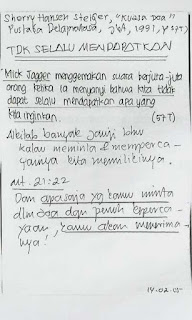 Sherry Hansen Steiger, "KUASA DOA"
Pustaka Delapratasa, Jkt, 1991, p 57T)
TDK SELALU MENDAPATKAN
Mick Jagger menggemakan suara berjuta-juta
orang ketika ia menyanyi bahwa kita tidak
dapat selalu mendapatkan apa yang
kita inginkan.
(57T)
Alkitab banyak janji lahu
kalau meminta & memperca-
yainya kita memilikinya.
Mt. 21:22
Dan apasaja yg kamu minta
dlm doa dan penuh keperca-
yaan, kamu akan menerima-
nya!
14-02-05